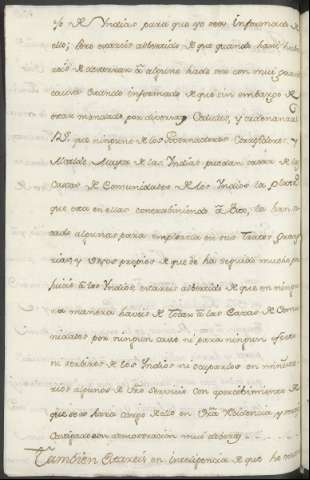 jo de Yndias para que yo sea informado de
ello; Pero estareis advertido de que quando havi
reis de desterrar à alguno hade ser con mui gran
causa estando informado de que sin embargo de
estar mandado por diversas Cedulas, y ordenanzas
que ninguno de los Governadores Corregidores y
Alcaldes Mayores de las Yndias puedan sacar de las
Caxas de Comunidades de los Yndios la plata
que esta en ellas contrabiniendo à esto, la han
sado algunas para emplearla en sus Tratos Grang
rias y Usos propios de que se ha seguido mucho per
juicio à los Yndios, estareis advertido de que en ningu
na manera haveis de tocar à las Caxas de Comu
nidades por ningun caso ni para ningun efecto
ni serbiros de los Yndios ni ocuparlos en
rios algunos de Vro Servicio con apercibimiento de
que se os hara cargo de ello en Vra Residencia y sereis
Castigado con demostracion mui
Tambien Estareis en inteligencia de que he